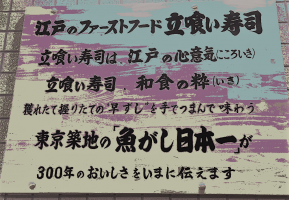 江戸のファーストフード立喰い寿司
立喰い寿司は、江戸の心意気(こころいき)
立喰い寿司、和食の粋(いき)
穫れたて握りたての"早ずし"を手でつまんで味わう
東京築地の「魚がし日本一」が
300年のおいしさをいまに伝えます